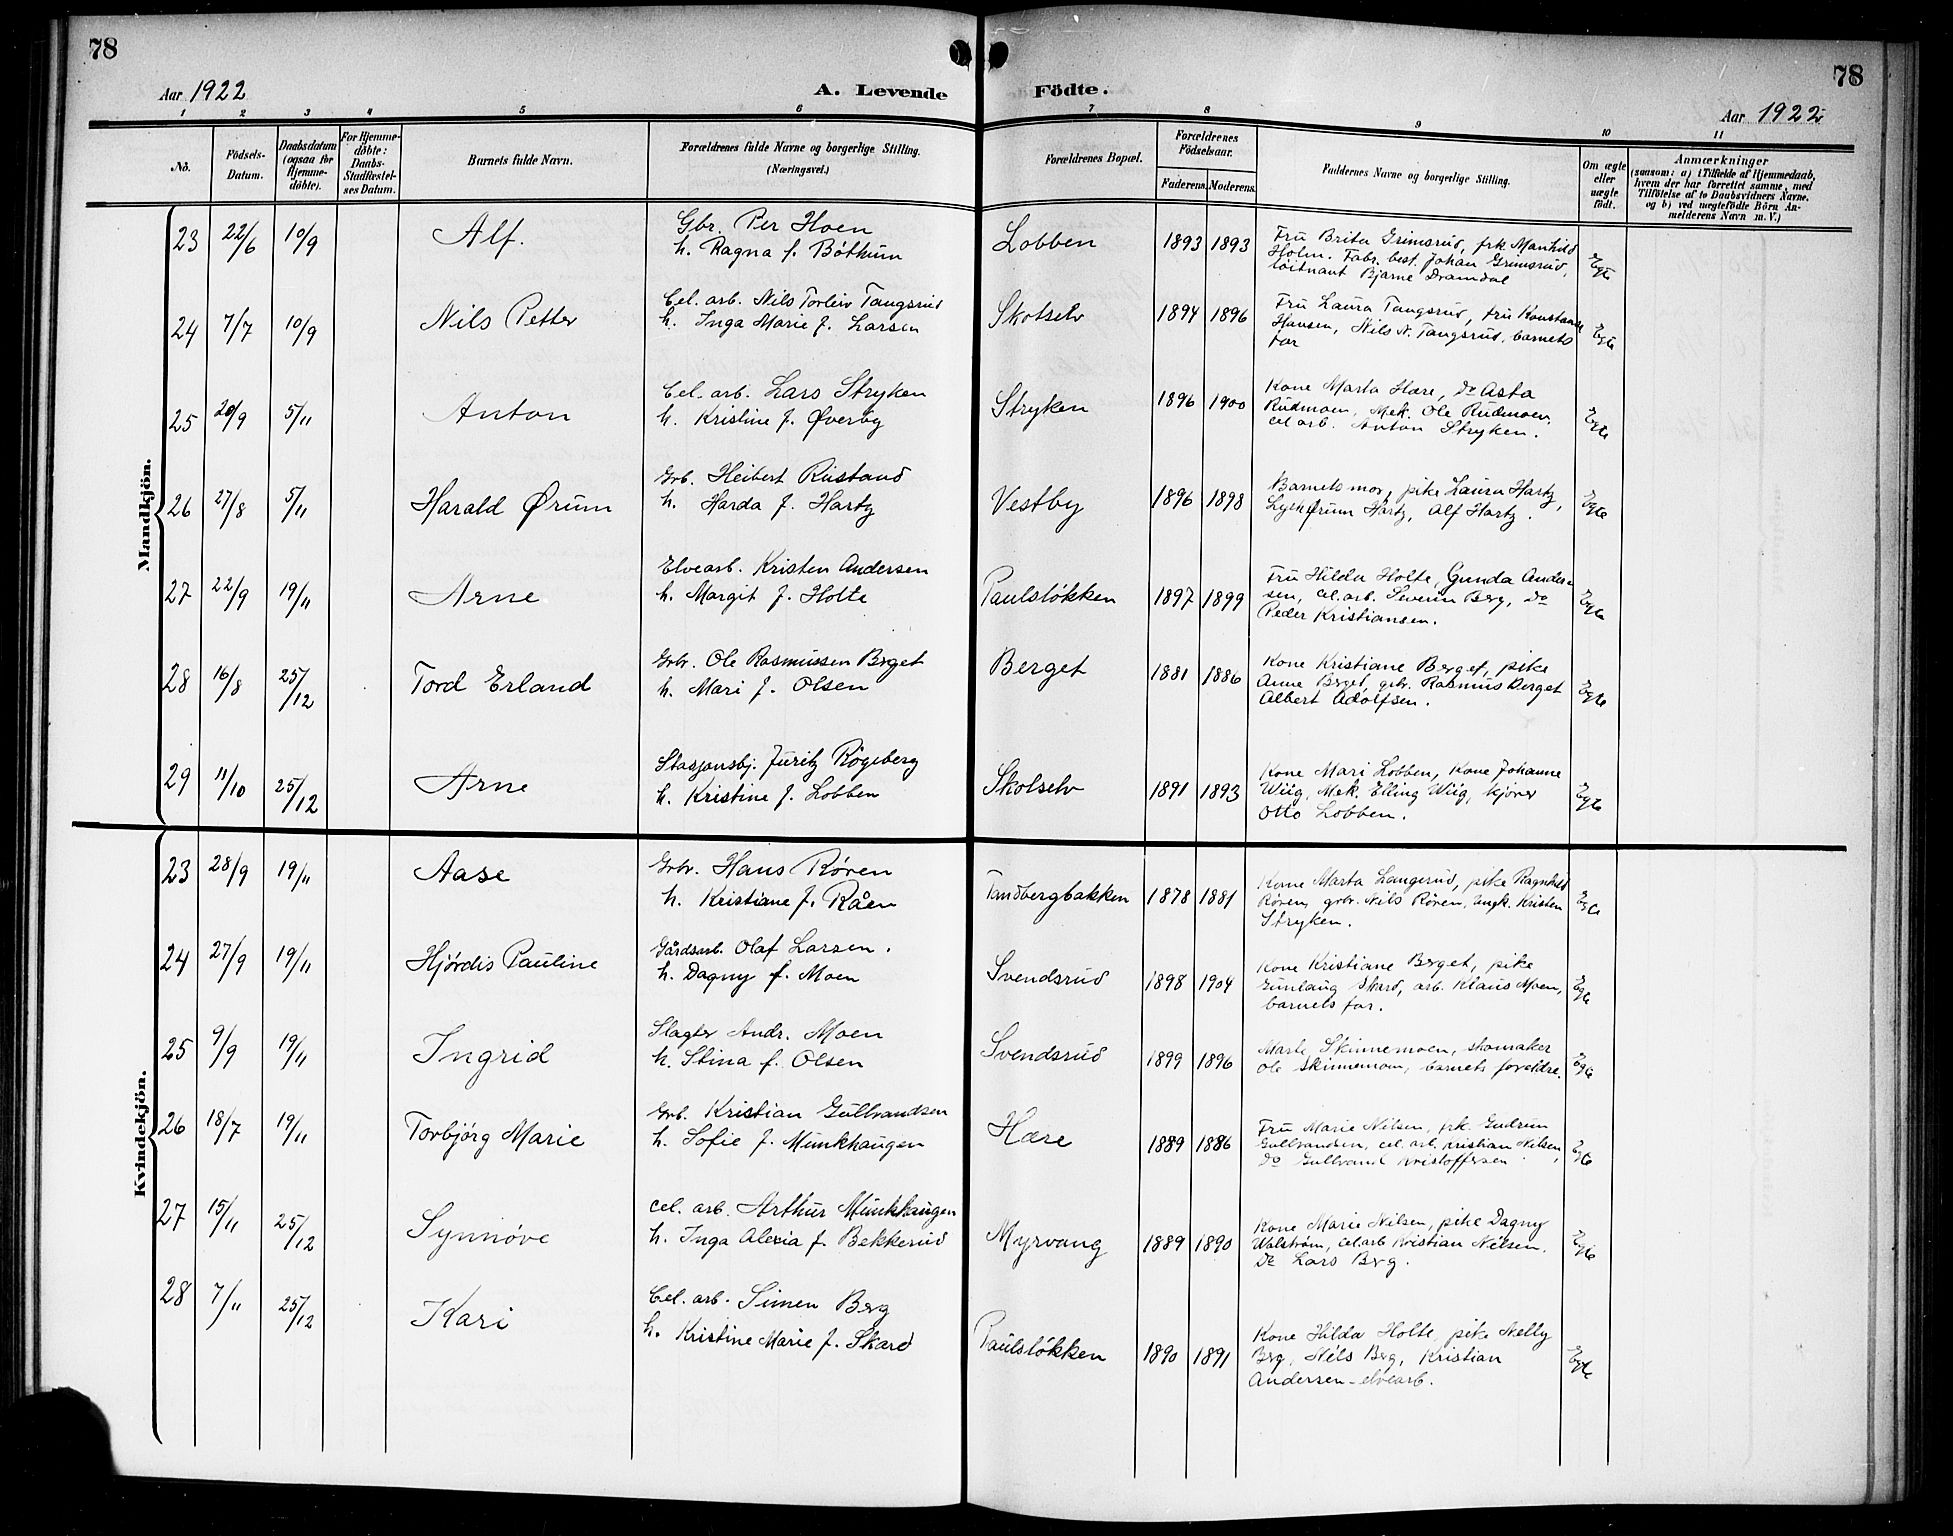 78
78
Aar 1922
A. Levende
Födte.
Aar 1922
1 2 3 4 5 6 7 8 9 10 11
No.
Födsels-
Datum.
Daabsdatum
(ogsaa for
Hjemme-
døbte).
For Hjemme-
døbte:
Daabs-
Stadfæstel-
ses Datum.
Barnets fulde Navn.
Forældrenes fulde Navne og borgerlige Stilling.
(Næringsvei.)
Forældrenes Bopæl.
Forældrenes
Födselsaar.
Faderens. Moderens.
Faddernes Navne og borgerlige Stilling.
Om ægte
eller
uægte
födt.
Anmærkninger
(saasom: a) i Tilfælde af Hjemmedaab,
hvem der har forrettet samme, med
Tilföielse af to Daabsvidners Navne,
og b) ved uægtefödte Börn An-
melderens Navn m. V.)
Mandkjön.
23 22/6 10/9 Alf.
Gbr. Per Hoen
h. Ragna f. Bøthum
Lobben 1893 1893
Fru Brita Grimsrud, frk. Manhild
Holm. Fabr. best. Johan Grimsrud,
løitnant Bjarne Dramdal
Egte
24 7/7 10/9 Nils Petter
Cel. arb. Nils Torleiv Tangsrud
h. Inga Marie f. Larsen
Skotselv 1894 1896
Fru Laura Tangsrud, fru Konstance
Hansen, Nils N. Tangsrud, barnets
far
Egte
25 20/9 5/11 Anton
Cel. arb. Lars Stryken
h. Kristine f. Øverby
Stryken 1896 1900
Kone Marta Hære, do Asta
Rudmoen, Mek. Ole Rudmoen,
cel. arb. Anton Stryken.
Egte
26 27/8 5/11 Harald Ørum
Grb. Heibert Rustand
h. Harda f. Hartz
Vestby 1896 1898
Barnets mor, pike Laura Hartz,
Ørum Hartz, Alf Hartz.
Egte
27 22/9 19/11 Arne
Elvearb. Kristen Andersen
h. Margit f. Holte
Paulsløkken 1897 1899
Fru Hilda Holte, Gunda Ander-
sen, cel. arb. Severin Berg, do
Peder Kristiansen.
Egte
28 16/8 25/12 Tord Erland
Grbr. Ole Rasmussen Berget
h. Mari f. Olsen
Berget 1881 1886
Kone Kristiane Berget, pike
Anne Berget, gbr. Rasmus Berget
Albert Adolfsen.
Egte
29 11/10 25/12 Arne
Stasjonsbj. Juritz Røgeberg
h. Kristine f. Lobben
Skotselv 1891 1893
Kone Mari Lobben, Kone Johanne
Wiig, Mek. Elling Wiig, kjører
Otto Lobben.
Egte
Kvindekjön.
23 28/9 19/11 Aase
Grbr. Hans Røren
h. Kristiane f. Råen
Tandbergbakken 1878 1881
Kone Marta Langerud, pike Ragnhild
Røren, grbr. Nils Røren, ungk. Kristen
Stryken.
Egte
24 27/9 19/11 Hjørdis Pauline
Gårdsarb. Olaf Larsen.
h. Dagny f. Moen
Svendsrud 1898 1904
Kone Kristiane Berget, pike
Gunlaug Skard, arb. Klaus Moen,
barnets far.
Egte
25 9/9 19/11 Ingrid
Slagter Andr. Moen
h. Stina f. Olsen
Svendsrud 1899 1896
Marte Skinnemoen, skomaker
Ole Skinnemoen, barnets foreldre.
Egte
26 18/7 19/11 Torbjørg Marie
Grb. Kristian Gulbrandsen
h. Sofie f. Munkhaugen
Hære 1889 1886
Fru Marie Nilsen, frk. Gudrun
Gulbrandsen, cel. arb. Kristian Nilsen,
do Gulbrand Kristoffersen.
Egte
27 15/11 25/12 Synnøve
Cel. arb. Arthur Munkhaugen
h. Inga Alexia f. Bekkerud
Myrvang 1889 1890
Kone Marie Nilsen, pike Dagny
Walstrøm, cel. arb Kristian Nilsen.
Do Lars Berg.
Egte
28 7/11 25/12 Kari
Cel. arb. Simen Berg
h. Kristine Marie f. Skard
Paulsløkken 1890 1891
Kone Hilda Holte, pike Nelly
Berg, Nils Berg, Kristian
Andersen - elvearb.
Egte